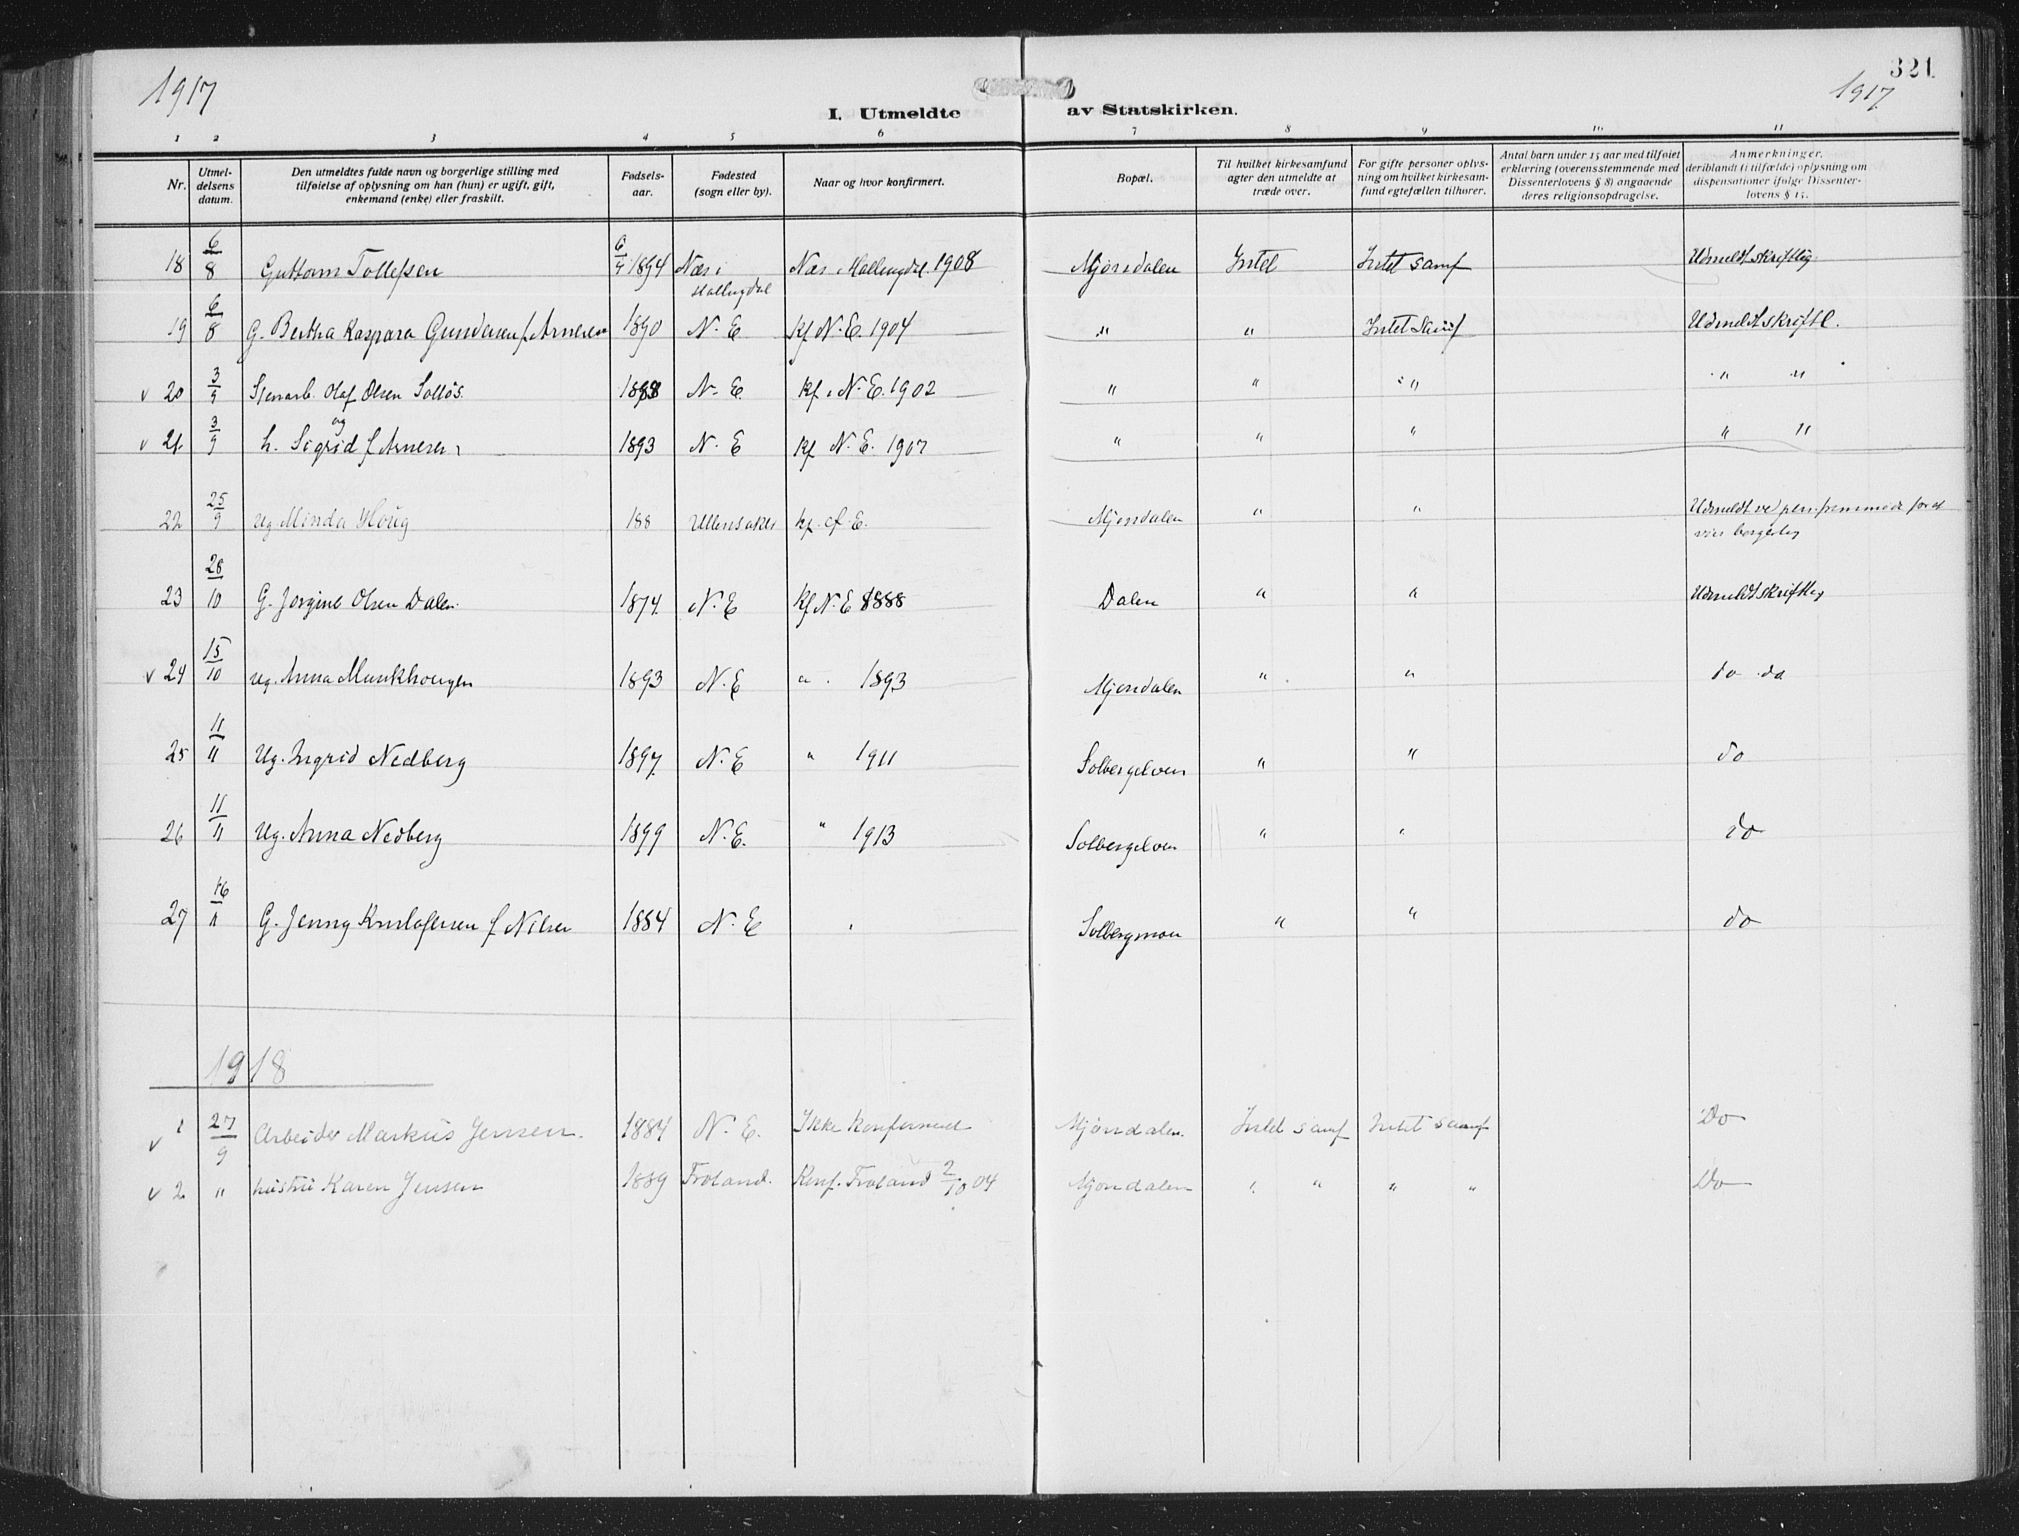 1917
321
1917.
I. Utmeldte av Statskirken.
1 2 3 4 5 6 7 8 9 10 11
Nr.
Utmeldelsens datum.
Den utmeldtes fulde navn og borgerlige stilling med
tilføielse af oplysning om han (hun) er ugift, gift,
enkemand (enke) eller fraskilt.
Fødselsaar.
Fødested
(sogn eller by).
Naar og hvor konfirmert.
Bopæl.
Til hvilket kirkesamfund
agter den utmeldte at
træde over.
For gifte personer oplys-
ning om hvilket kirkesam-
fund egtefællen tilhører.
Antal barn under 15 aar med tilføiet
erklæring (overensstemmende med
Dissenterlovens § 8) angaaende
deres religionsopdragelse.
Anmerkninger,
deriblandt (i tilfælde) oplysning om
dispensationer ifølge Dissenter-
lovens § 15.
18 6/8 Guttorm Tollefsen 1894 Næs i Hallingdal Næs i Hallingdal. 1908 Mjøndalen Intet Intet samf Udmeldt skriftlig
19 6/8 G. Bertha Kaspara Gundersen f. Arnesen 1890 N. E. Kf N. E. 1904 " " Intet samf Udmeldt skriftl.
v 20 3/9 Olaf Olsen N. E. kf. N. E. 1902 " " " " "
og
v 21 3/9 h. Sigrid f. Arnesen 1893 N. E kf N. E. 1907 " " " " "
22 25/9 ug. Minda Houg 188 Ullensaker kf. Mjøndalen " " Udmeldt ved
23 28/10 G. Jorgine Olsen Dalen. 1874. N. E Kf N. E 1888 Dalen " " Udmeldt skriftlig
v 24 15/10 ug. Anna Munkhaugen 1893 N. E " 1893 Mjøndalen " " do do
25 11/11 Ug. Ingrid Nedberg 1897. N. E " 1911 Solbergelven " " do
26 11/11 Ug. Anna Nedberg 1899 N. E. " 1913 Solbergelven " " do
27 16/11 G. Jenny Kristofersen f Nilsen 1884 N. E Solbergmoen " " do
1918
v 1 27/9 Arbeider Markus Jensen. 1884 N. E. Ikke konfirmeret Mjøndalen. Intet samf Intet samf Do
v 2 " hustru Karen Jensen 1889 Froland. Konf. Froland 2/10 04 Mjøndalen " " " " Do